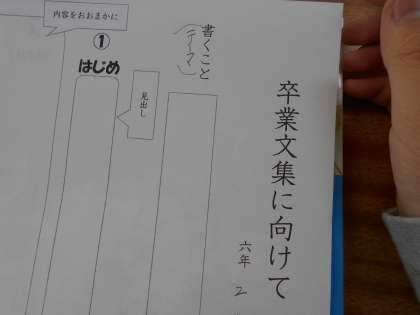 卒業文集に向けて
六年 2
書くこと
(テーマ)
見出し
①
はじめ
内容をおおまかに